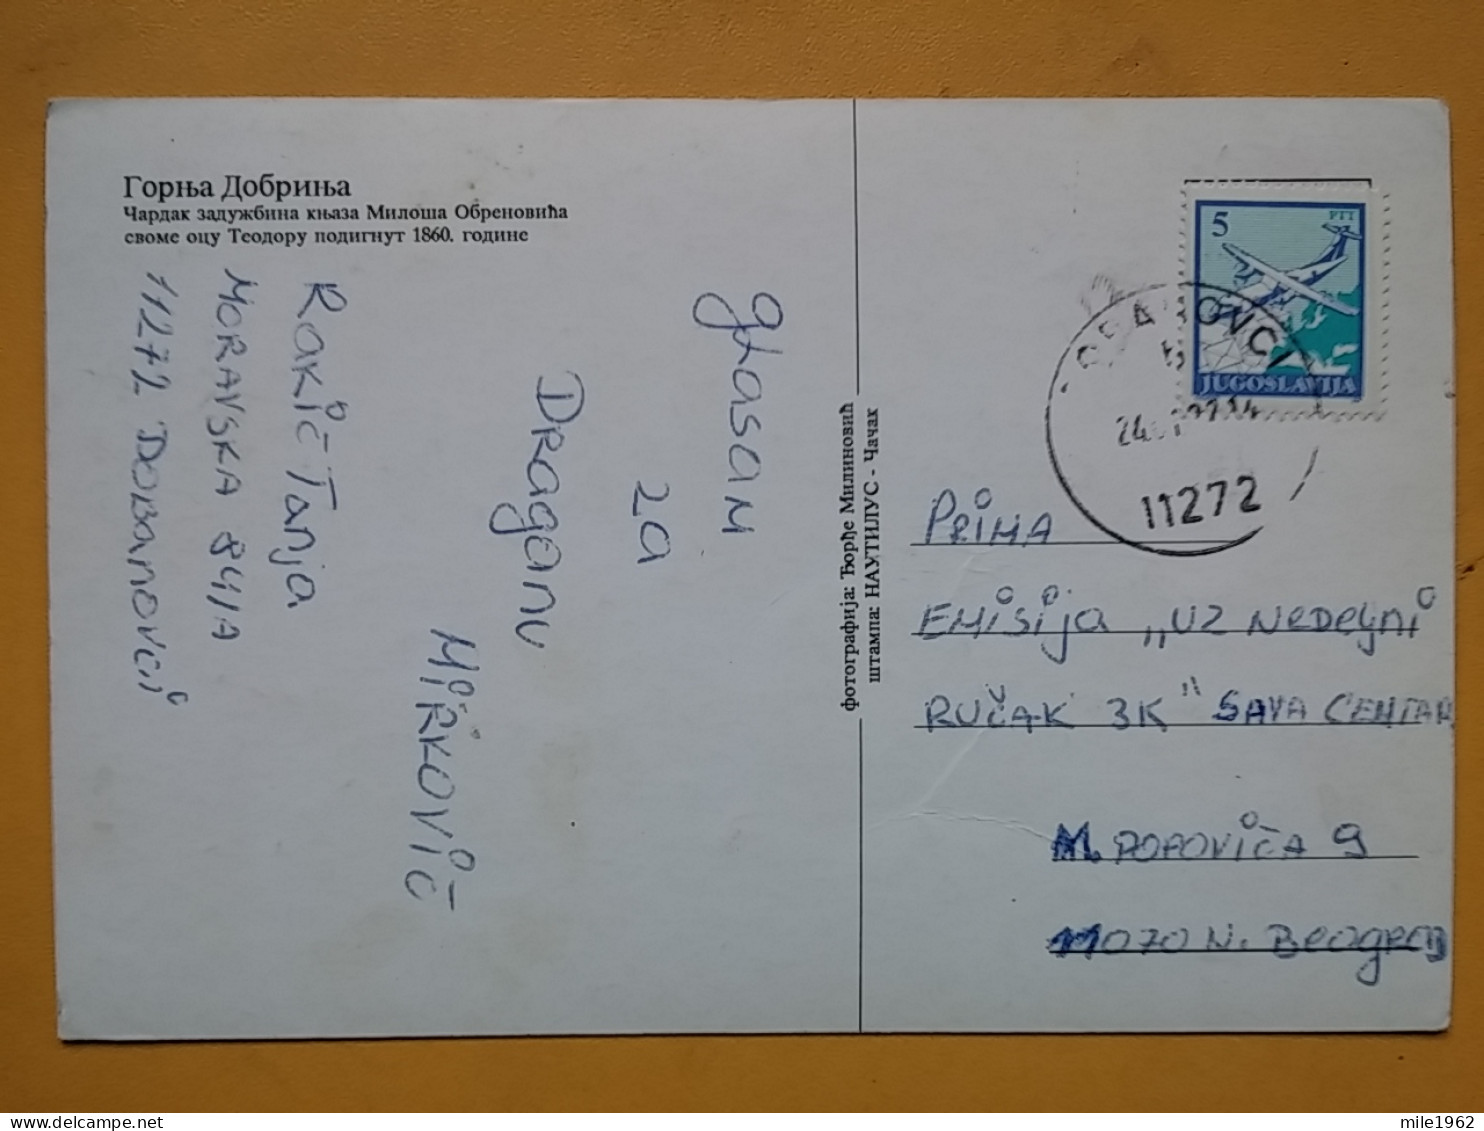 Горња Добриња
Чардак задужбина књаза Милоша Обреновића
своме оцу Теодору подигнут 1860. године
glasam
za
Draganu
Mirković
Rakić Tanja
Moravska 84/A
11272 Dobanovci
фотографија: Ђорђе Милиновић
штампа: НАУТИЛУС - Чачак
5
PTT
JUGOSLAVIJA
11272
Prima
Emisija „uz nedeljni
Ručak 3K" Sava Centar
M. Popovića 9
11070 N. Beograd
mile1962